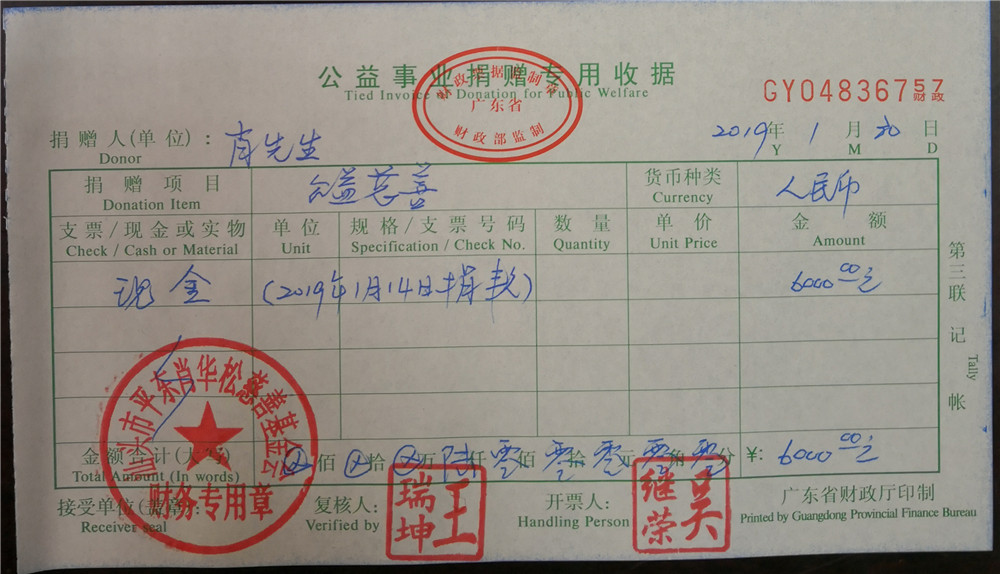 公益事业捐赠专用收据
Tied Invoice of Donation for Public Welfare
广东省
财政部监制
GY04836757
财政
捐赠人(单位): 肖先生
Donor
2019年 1月 30日
Y M D
捐赠项目 公益慈善 货币种类 人民币
Donation Item Currency
支票/现金或实物 单位 规格/支票号码 数量 单价 金额
Check / Cash or Material Unit Specification / Check No. Quantity Unit Price Amount
现金 (2019年1月14日捐款) 6000.00元
第三联 记帐
Tally
金额合计(大写) ⊗佰⊗拾⊗万陆仟零佰零拾零元零角零分 ¥: 6000.00元
Total Amount (In words)
市平东肖华松慈善基金会
财务专用章
接受单位(盖章): 复核人: 王瑞坤 开票人: 吴继荣 广东省财政厅印制
Receiver seal Verified by Handling Person Printed by Guangdong Provincial Finance Bureau